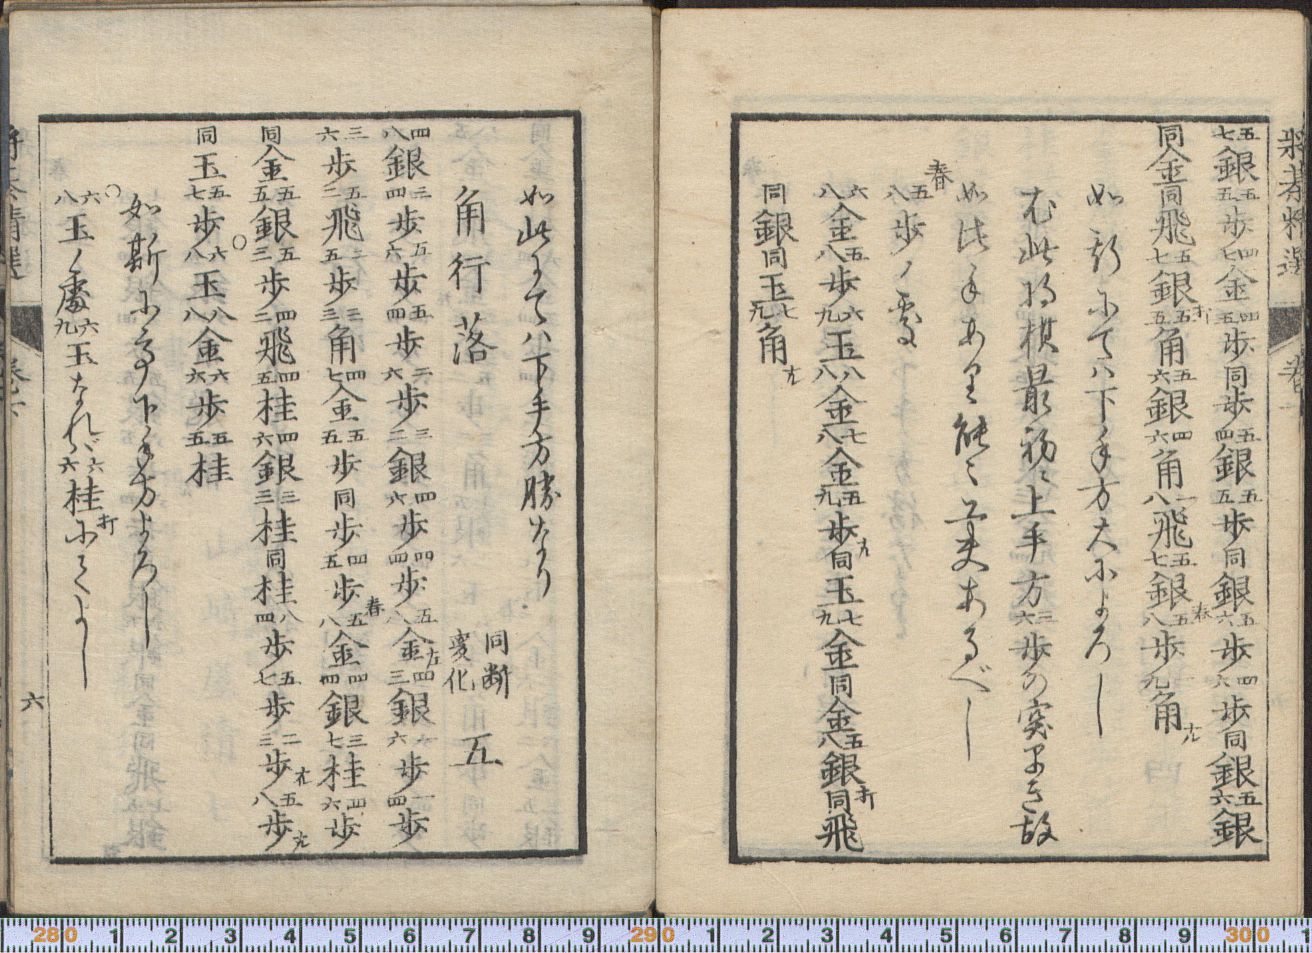 将棊精選
五七銀五五歩四七金四五歩同歩五四銀五五歩同銀五六歩四六歩同銀五六銀
同金同飛五七銀打五五角五六銀四六角一八飛五七銀春五八歩九角成
如斯にてハ下手方大によろし
尤此将棋最初に上手方三六歩の突早き故
如此手あり能々工夫あるべし
春五八歩ノ変
六八金五八歩六九玉八八金七八金五九歩成同玉七九金同金五八銀打同飛
同銀同玉七九角成
如此にてハ下手方勝なり
角行落 同断変化 五
四八銀三四歩五六歩五四歩二六歩三二銀四六歩四四歩五八金左四三銀一六歩一四歩
三六歩五二飛二五歩三三角四七金五五歩同歩四五歩春五八金四四銀三七桂四六歩
同金五五銀五三歩四二飛四五桂四六銀三三桂同桂八四歩五七歩二三歩成五八歩成
同玉五七歩○六八玉八八金六六歩五五桂
如斯にして下手方よろし
○六八玉ノ処六九玉なれバ六六桂打にてよし
六
280 1 2 3 4 5 6 7 8 9 290 1 2 3 4 5 6 7 8 9 300 1